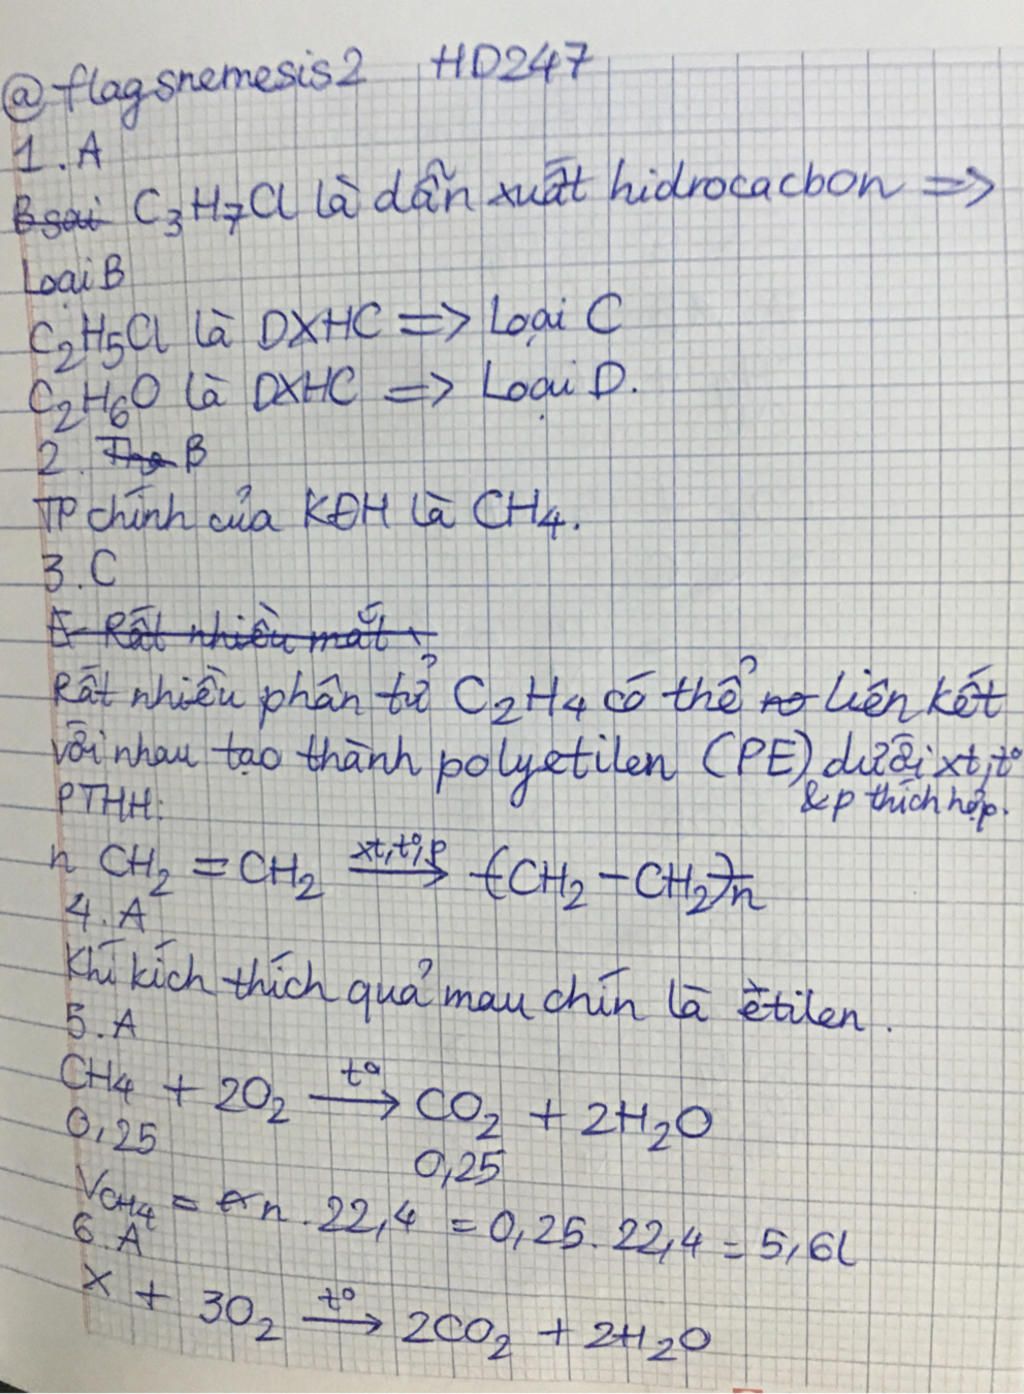 @flagsnemesis2 HD247
1. A
B sai C3H7Cl là dẫn xuất hidrocacbon =>
Loại B
C2H5Cl là DXHC => Loại C
C2H6O là DXHC => Loại D.
2. B
TP chính của KĐH là CH4.
3. C
E Rất nhiều mắt
Rất nhiều phân tử C2H4 có thể liên kết
với nhau tạo thành polyetilen (PE) dưới xt, t°
& p thích hợp.
PTHH:
n CH2 = CH2 xt, t°, p → (CH2 - CH2)n
4. A
Khí kích thích quả mau chín là etilen.
5. A
CH4 + 2O2 t° → CO2 + 2H2O
0,25 0,25
VCH4 = n . 22,4 = 0,25. 22,4 = 5,6l
6. A
X + 3O2 t° → 2CO2 + 2H2O